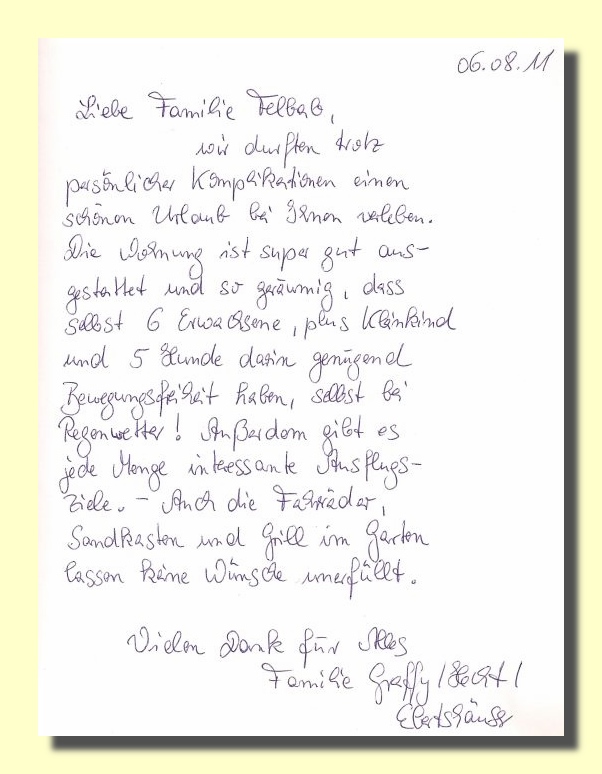 06.08.11
Liebe Familie Felbab,
wir durften trotz
persönlicher Komplikationen einen
schönen Urlaub bei Ihnen verleben.
Die Wohnung ist super gut aus-
gestattet und so geräumig, dass
selbst 6 Erwachsene, plus Kleinkind
und 5 Hunde darin genügend
Bewegungsfreiheit haben, selbst bei
Regenwetter! Außerdem gibt es
jede Menge interessante Ausflugs-
ziele. – Auch die Fahrräder,
Sandkasten und Grill im Garten
lassen keine Wünsche unerfüllt.
Vielen Dank für Alles
Familie Graffy / Hecht /